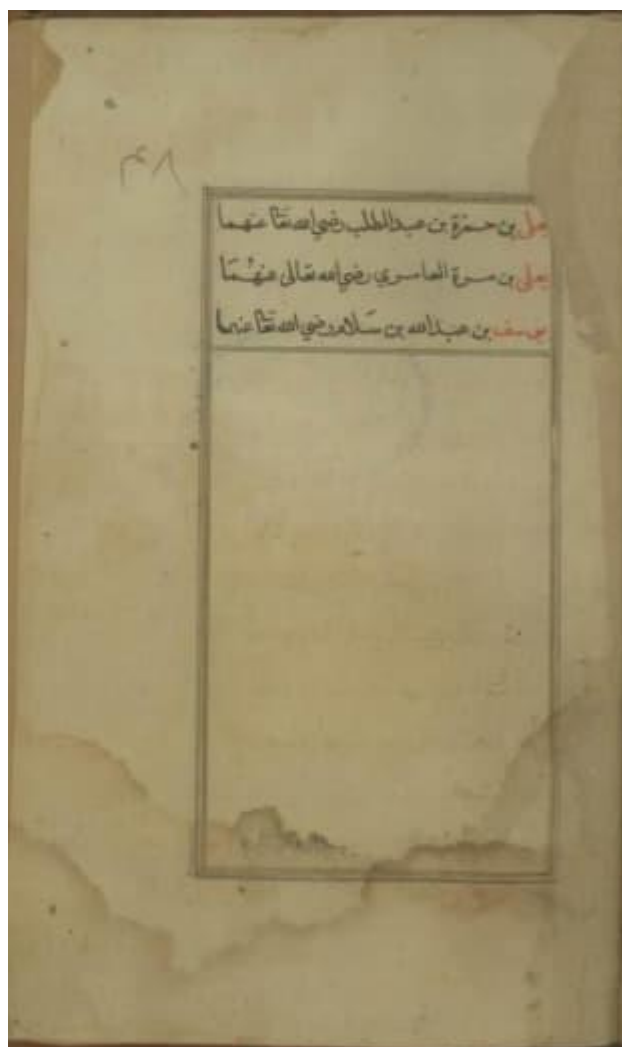 ٤٨
يعلى بن حمزة بن عبد المطلب رضي الله تعا عنهما
يعلى بن مرة العامري رضي الله تعالى عنهُمَا
يوسف بن عبد الله بن سَلام رضي الله تعا عنهما